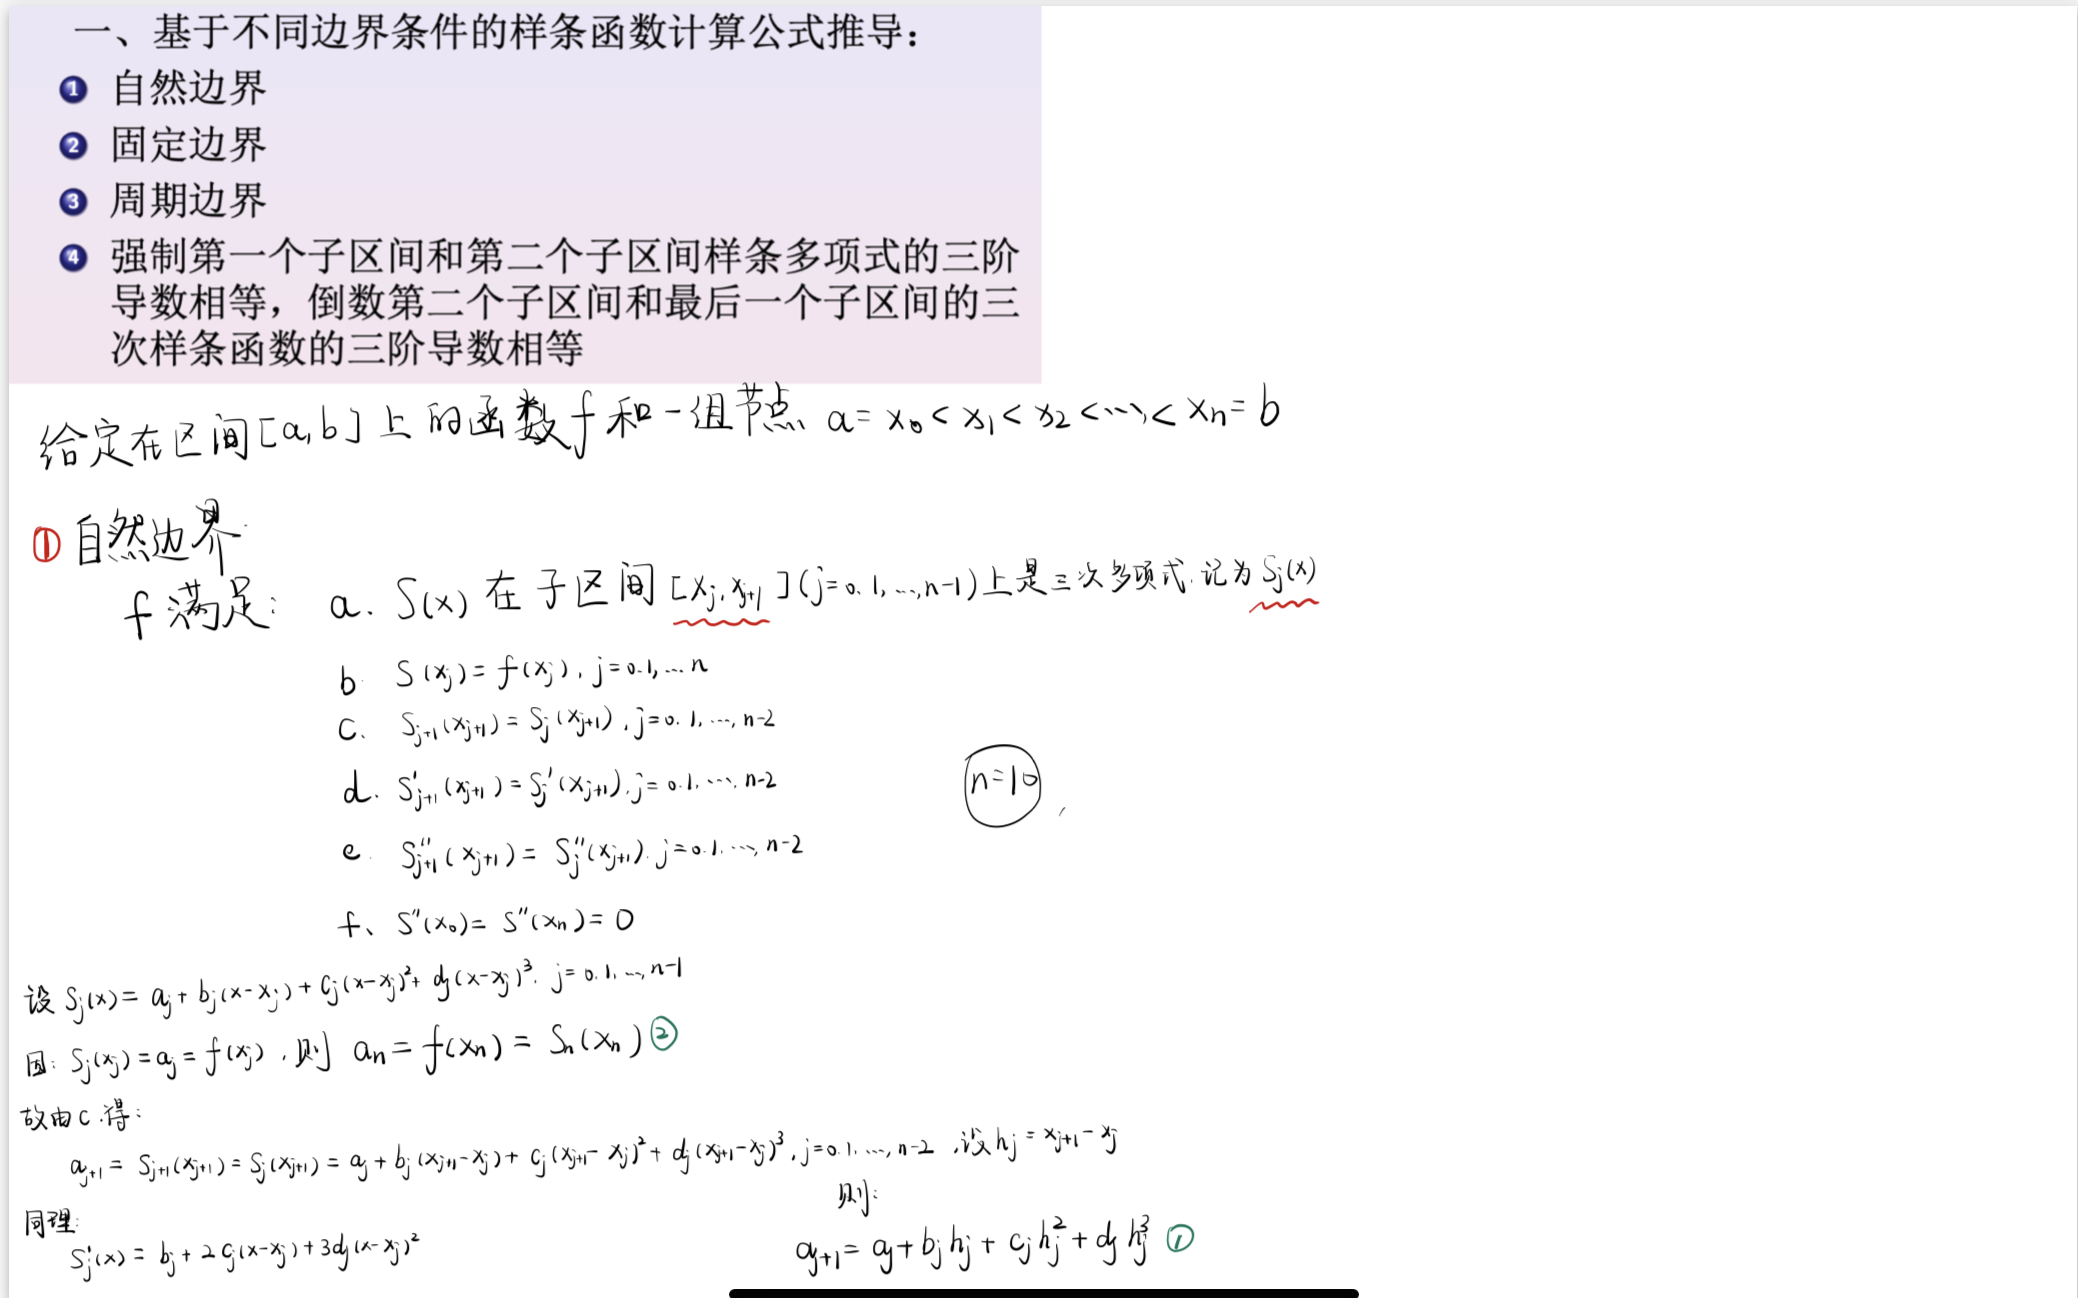 一、基于不同边界条件的样条函数计算公式推导：
1 自然边界
2 固定边界
3 周期边界
4 强制第一个子区间和第二个子区间样条多项式的三阶
导数相等，倒数第二个子区间和最后一个子区间的三
次样条函数的三阶导数相等
给定在区间[a,b]上的函数f和一组节点 a=x₀<x₁<x₂<…<xₙ=b
① 自然边界
f满足： a. S(x) 在子区间[xⱼ,xⱼ₊₁](j=0.1,…,n-1)上是三次多项式.记为Sⱼ(x)
b. S(xⱼ)=f(xⱼ), j=0.1,…n
c、 Sⱼ₊₁(xⱼ₊₁)=Sⱼ(xⱼ₊₁), j=0.1,…,n-2
d. S'ⱼ₊₁(xⱼ₊₁)=Sⱼ'(xⱼ₊₁), j=0.1.…,n-2
n=10
e. S''ⱼ₊₁(xⱼ₊₁)=Sⱼ''(xⱼ₊₁). j=0.1.…,n-2
f、 S''(x₀)=S''(xₙ)=0
设 Sⱼ(x)=aⱼ+bⱼ(x-xⱼ)+cⱼ(x-xⱼ)²+dⱼ(x-xⱼ)³. j=0.1.…,n-1
因: Sⱼ(xⱼ)=aⱼ=f(xⱼ), 则 aₙ=f(xₙ)=Sₙ(xₙ) ②
故由c.得:
aⱼ₊₁=Sⱼ₊₁(xⱼ₊₁)=Sⱼ(xⱼ₊₁)=aⱼ+bⱼ(xⱼ₊₁-xⱼ)+cⱼ(xⱼ₊₁-xⱼ)²+dⱼ(xⱼ₊₁-xⱼ)³, j=0.1.…,n-2 ,设hⱼ=xⱼ₊₁-xⱼ
则:
同理:
aⱼ₊₁=aⱼ+bⱼhⱼ+cⱼhⱼ²+dⱼhⱼ³ ①
Sⱼ'(x)=bⱼ+2cⱼ(x-xⱼ)+3dⱼ(x-xⱼ)²